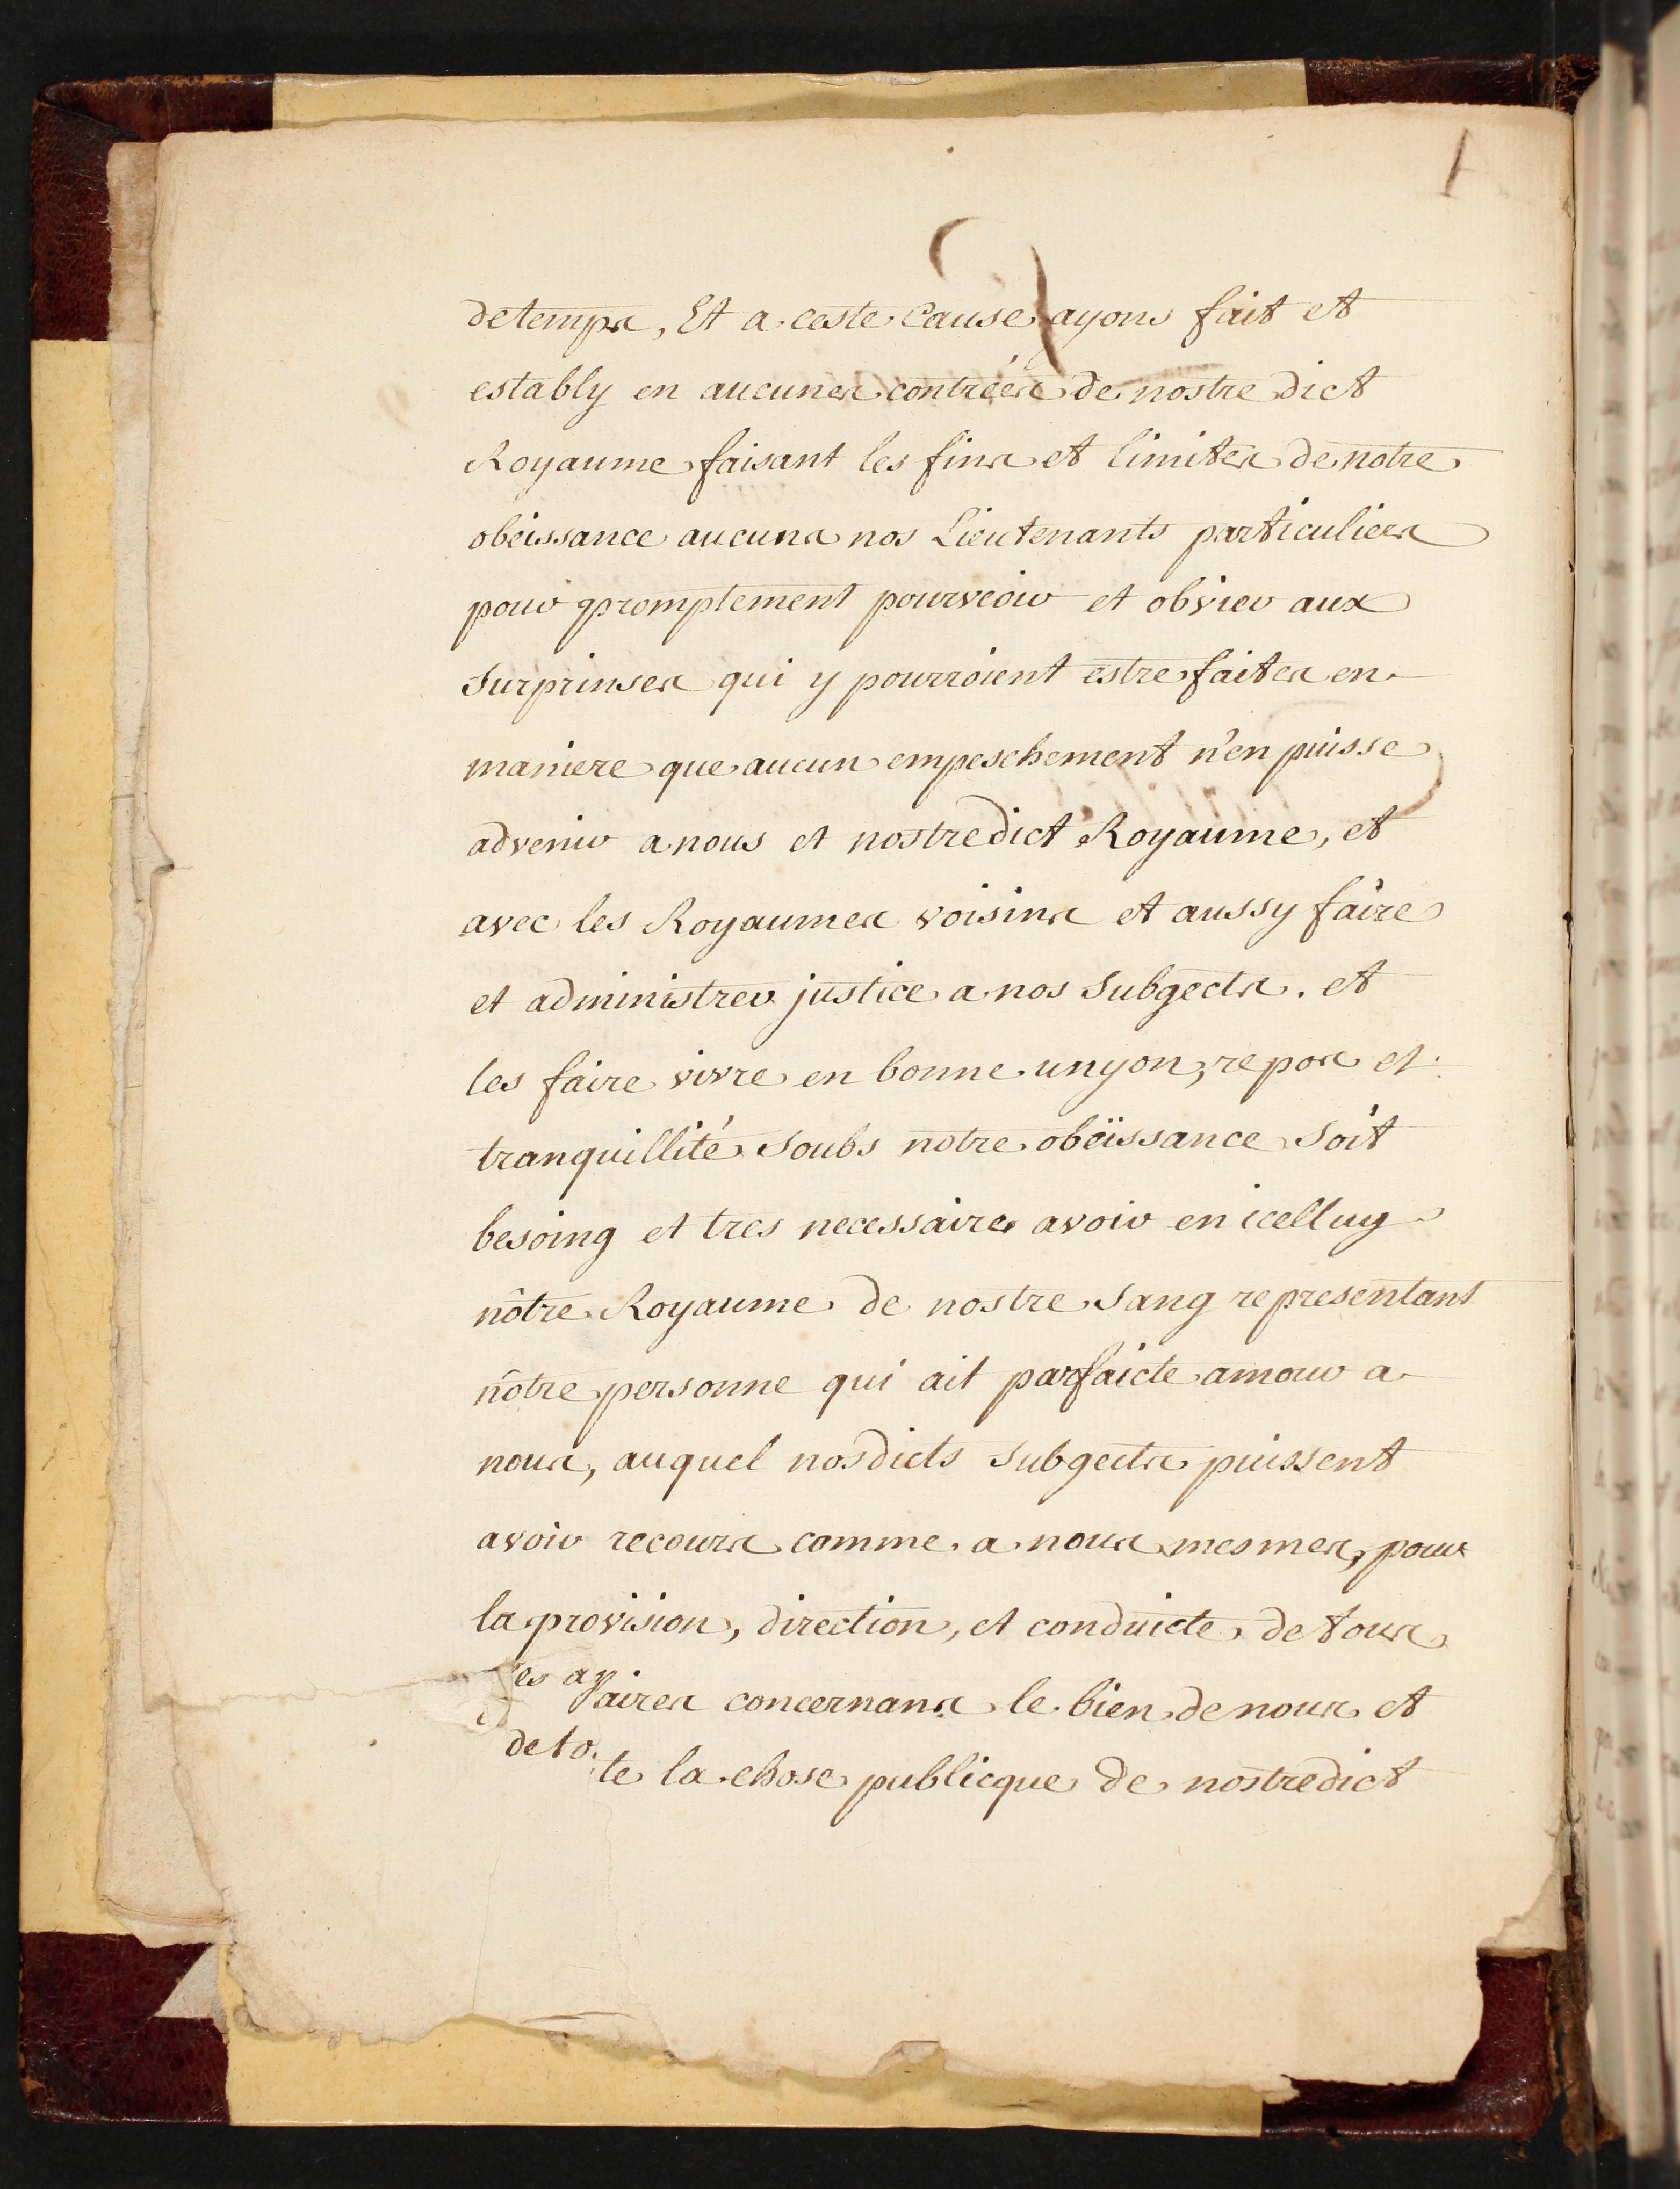 1
de temps, Et a ceste Cause ayons fait et
estably en aucunes contrées de nostre dict
Royaume faisant les fins et limites de notre
obeissance aucuns nos Lieutenants particuliers
pour promptement pourveoir et obvier aux
surprinses qui y pourroient estre faites en
maniere que aucun empeschement n'en puisse
advenir a nous et nostredict Royaume, et
avec les Royaumes voisins et aussy faire
et administrer justice a nos Subgects. et
les faire vivre en bonne unyon, repos et
tranquillité soubs notre obeïssance soit
besoing et tres necessaire avoir en icelluy
nôtre Royaume de nostre sang representant
nôtre personne qui ait parfaicte amour a
nous, auquel nosdicts Subgects puissent
avoir recours comme a nous mesmes, pour
la provision, direction, et conduicte de tous
es affaires concernans le bien de nous et
de to te la chose publicque de nostredict